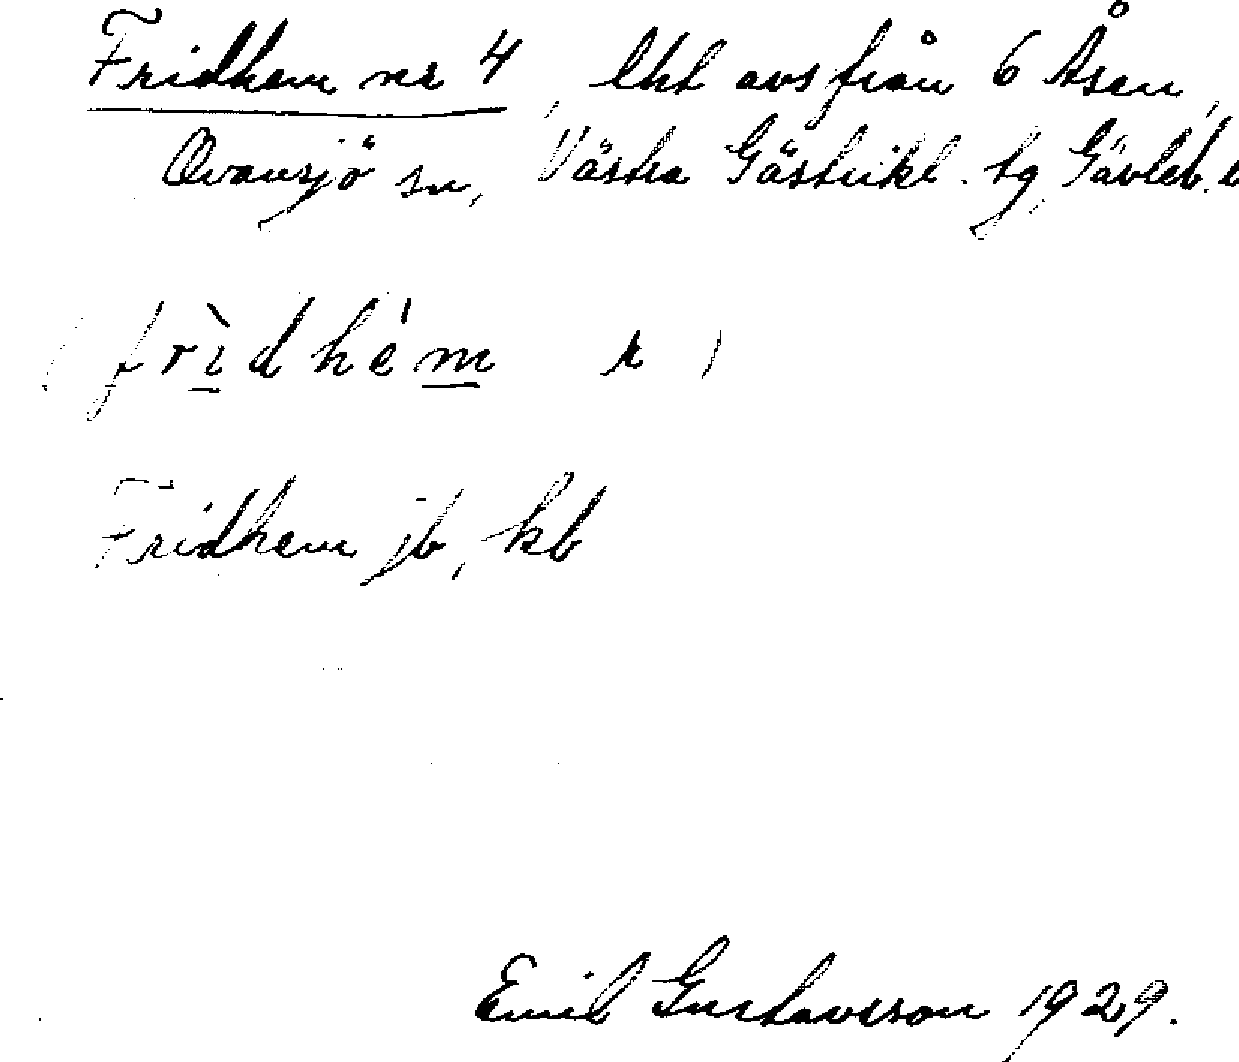 Fridhem nr 4, lht avs från 6 Åsen,
Ovansjö sn, Västra Gästrikl. tg, Gävleb. l
(frìdhém r)
Fridhem jb, kb
Emil Gustavsson 1929.